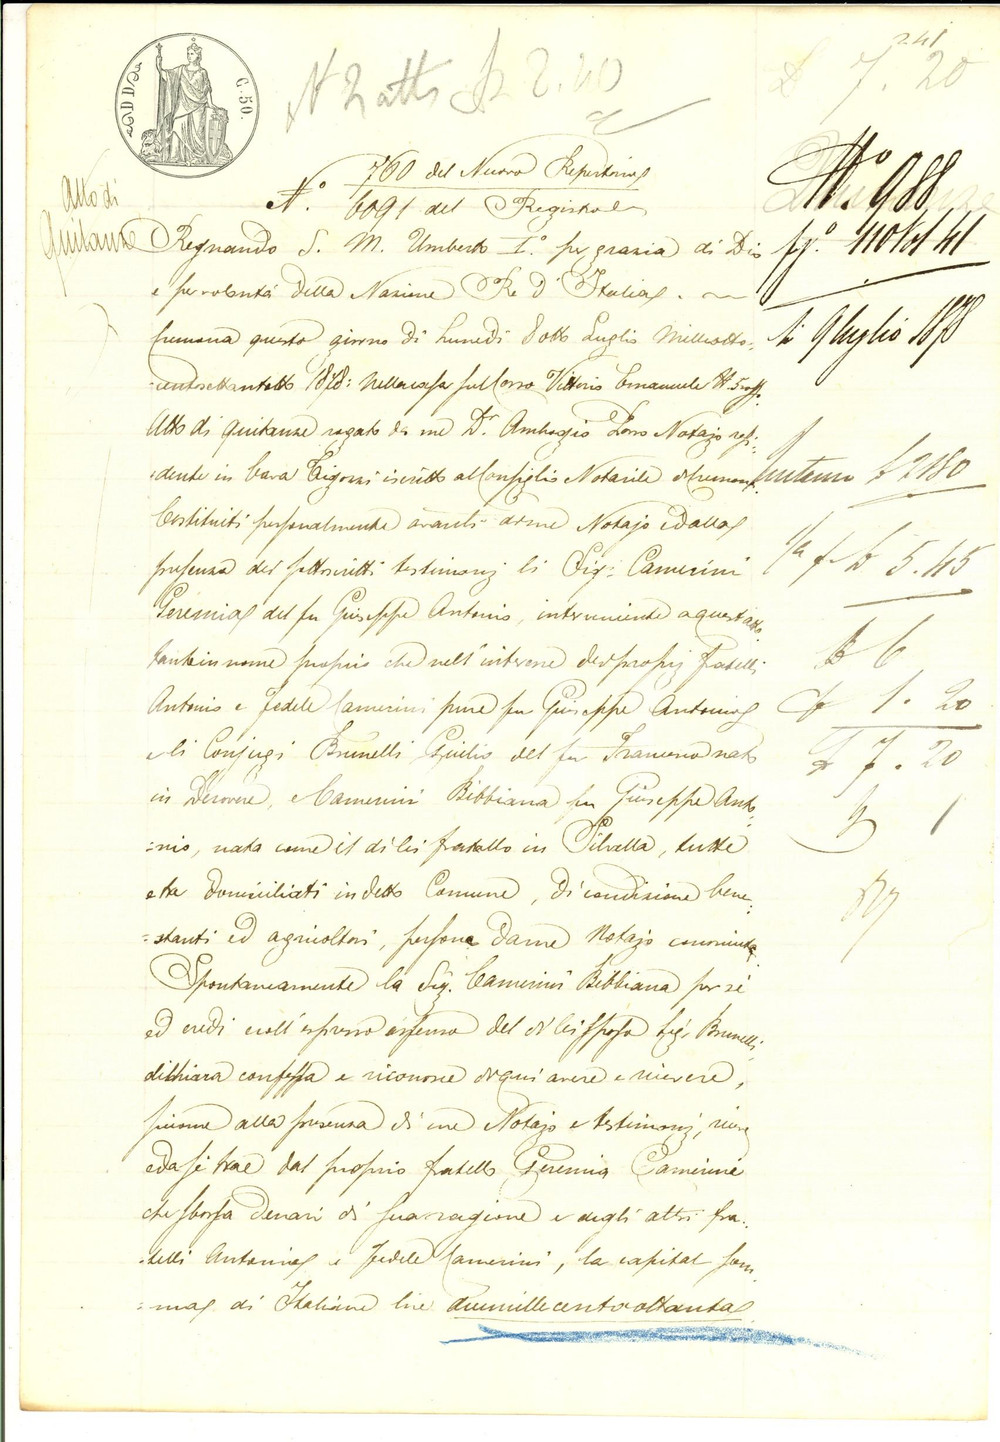 C. 50.
N 2 atti
7. 20
N.° 760 del Nuovo Repertorio
6091 del Registro
N.° 988
Atto di
Quitanza
Regnando S. M. Umberto I.° per grazia di Dio
fg.° 110 Vol 41
e per volontà della Nazione Re d'Italia.
Cremona questo giorno di Lunedì 8 otto Luglio Milleotto-
li 9 luglio 1878
-centosettantotto 1878: nella casa sul Corso Vittorio Emanuele N. 5
Atto di quitanza rogato da me D.r Ambrogio Notajo resi-
-dente in Cava Tigozzi iscritto al Consiglio Notarile di Cremona
£ 2180
Costituiti personalmente avanti di me Notajo e dalla
presenza dei sottoscritti testimonj li Sig.i Camerini
5.45
Geremia del fu Giuseppe Antonio, interveniente a quest'atto
tanto in nome proprio che nell'interesse dei proprj Fratelli
6
Antonio e Fedele Camerini pure fu Giuseppe Antonio
1. 20
e li Conjugi Brunelli Giulio del fu Francesco nato
7. 20
in Derovere, e Camerini Bibbiana fu Giuseppe Anto-
1
-nio, nata come il di lei fratello in Pilvalla, tutti
e tre domiciliati in detto Comune, di condizione bene-
-stanti ed agricoltori, persone da me Notajo conosciute.
Spontaneamente la Sig. Camerini Bibbiana per sé
ed eredi coll'espresso assenso del di lei sposo Sig. Brunelli
dichiara confessa e riconosce di qui avere e ricevere,
siccome alla presenza di me Notajo e testimonj, riceve
ed a sé trae dal proprio fratello Geremia Camerini
che sborsa denari di sua ragione e degli altri fra-
-telli Antonio e Fedele Camerini, la capital som-
-ma di Italiane lire duemillecentoottanta